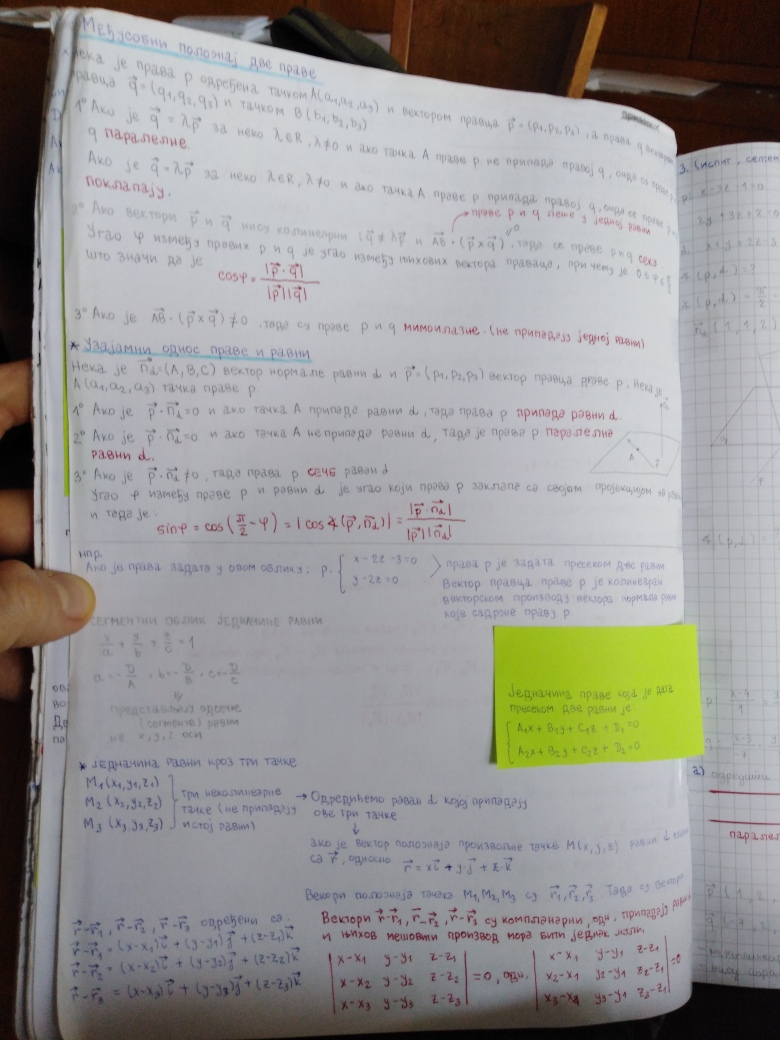 Међусобни положај две праве
Нека је права p одређена тачком A(a₁,a₂,a₃) и вектором правца p⃗=(p₁,p₂,p₃), а права q вектором
правца q⃗=(q₁,q₂,q₃) и тачком B(b₁,b₂,b₃)
1° Ако је q⃗=λp⃗ за неко λ∈R, λ≠0 и ако тачка A праве p не припада правој q, онда су праве p и
q паралелне.
Ако је q⃗=λp⃗ за неко λ∈R, λ≠0 и ако тачка A праве p припада правој q, онда се праве p и
поклапају.
→ праве p и q леже у једној равни
2° Ако вектори p⃗ и q⃗ нису колинеарни (q⃗≠λp⃗ и AB⃗·(p⃗×q⃗)=0, тада се праве p и q секу
Угао φ између правих p и q је угао између њихових вектора праваца, при чему је 0≤φ≤π/2
што значи да је
cosφ = |p⃗·q⃗| / |p⃗||q⃗|
3° Ако је AB⃗·(p⃗×q⃗)≠0, тада су праве p и q мимоилазне. (не припадају једној равни)
* Узајамни однос праве и равни
Нека је n⃗α=(A,B,C) вектор нормале равни α и p⃗=(p₁,p₂,p₃) вектор правца праве p. Нека је
A(a₁,a₂,a₃) тачка праве p
1° Ако је p⃗·n⃗α=0 и ако тачка A припада равни α, тада права p припада равни α.
2° Ако је p⃗·n⃗α=0 и ако тачка A не припада равни α, тада је права p паралелна
равни α.
3° Ако је p⃗·n⃗α≠0, тада права p сече раван α
Угао φ између праве p и равни α је угао који права p заклапа са својом пројекцијом на раван
и тада је:
sinφ = cos(π/2 − φ) = |cos∡(p⃗,n⃗α)| = |p⃗·n⃗α| / |p⃗||n⃗α|
нпр.
Ако је права задата у овом облику: p: { x−2z−3=0
y−2z=0
права p је задата пресеком две равни
Вектор правца праве p је колинеаран
векторском производу вектора нормала равни
које садрже праву p
СЕГМЕНТНИ ОБЛИК ЈЕДНАЧИНЕ РАВНИ
x/a + y/b + z/c = 1
a=−D/A, b=−D/B, c=−D/C
⇓
представљају одсечке
(сегменте) равни
на x,y,z оси
Једначина праве која је дата
пресеком две равни је:
{ A₁x+B₁y+C₁z+D₁=0
A₂x+B₂y+C₂z+D₂=0
* ЈЕДНАЧИНА РАВНИ КРОЗ ТРИ ТАЧКЕ
M₁(x₁,y₁,z₁)
M₂(x₂,y₂,z₂)
M₃(x₃,y₃,z₃)
три неколинеарне
тачке (не припадају
истој равни)
→ Одредићемо раван α којој припадају
ове три тачке
↓
ако је вектор положаја произвољне тачке M(x,y,z) равни α
са r⃗, односно r⃗=xi⃗+y·j⃗+z·k⃗
Векори положаја тачака M₁,M₂,M₃ су r⃗₁,r⃗₂,r⃗₃. Тада су вектори
r⃗−r⃗₁, r⃗−r⃗₂, r⃗−r⃗₃ одређени са:
r⃗−r⃗₁ = (x−x₁)i⃗+(y−y₁)j⃗+(z−z₁)k⃗
r⃗−r⃗₂ = (x−x₂)i⃗+(y−y₂)j⃗+(z−z₂)k⃗
r⃗−r⃗₃ = (x−x₃)i⃗+(y−y₃)j⃗+(z−z₃)k⃗
Вектори r⃗−r⃗₁, r⃗−r⃗₂, r⃗−r⃗₃ су компланарни, одн. припадају равни α
и њихов мешовити производ мора бити једнак нули.
|x−x₁ y−y₁ z−z₁|
|x−x₂ y−y₂ z−z₂| =0, одн.
|x−x₃ y−y₃ z−z₃|
|x−x₁ y−y₁ z−z₁|
|x₂−x₁ y₂−y₁ z₂−z₁| =0
|x₃−x₁ y₃−y₁ z₃−z₁|
3. (испит, септем
x−3z−1=0
n⃗α(1,1,2)
а) одредити
паралел